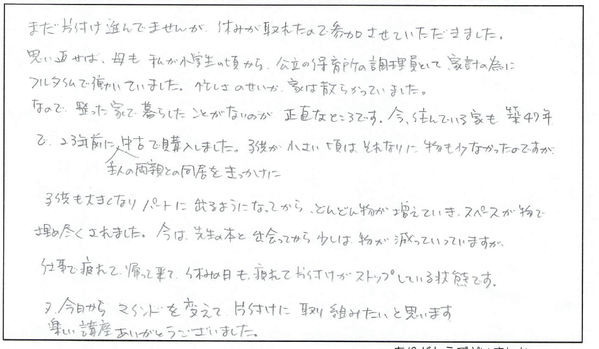 まだ片付け進んでませんが、休みが取れたので参加させていただきました。
思い返せば、母も私が小学生の頃から、公立の保育所の調理員として家計の為に
フルタイムで働いていました。忙しさのせいか、家は散らかっていました。
なので、整った家で暮らしたことがないのが正直なところです。今、住んでいる家も築47年
で、23年前に、中古で購入しました。子供が小さい頃はそれなりに物も少なかったのですが、
主人の両親との同居をきっかけに
子供も大きくなりパートに出るようになってから、どんどん物が増えていき、スペースが物で
埋め尽くされました。今は、先生の本と出会ってから少しは物が減っていっていますが、
仕事で疲れて、帰って来て、休みの日も、疲れて片付けがストップしている状態です。
又、今日から マインドを変えて 片付けに取り組みたいと思います
楽しい講座ありがとうございました。